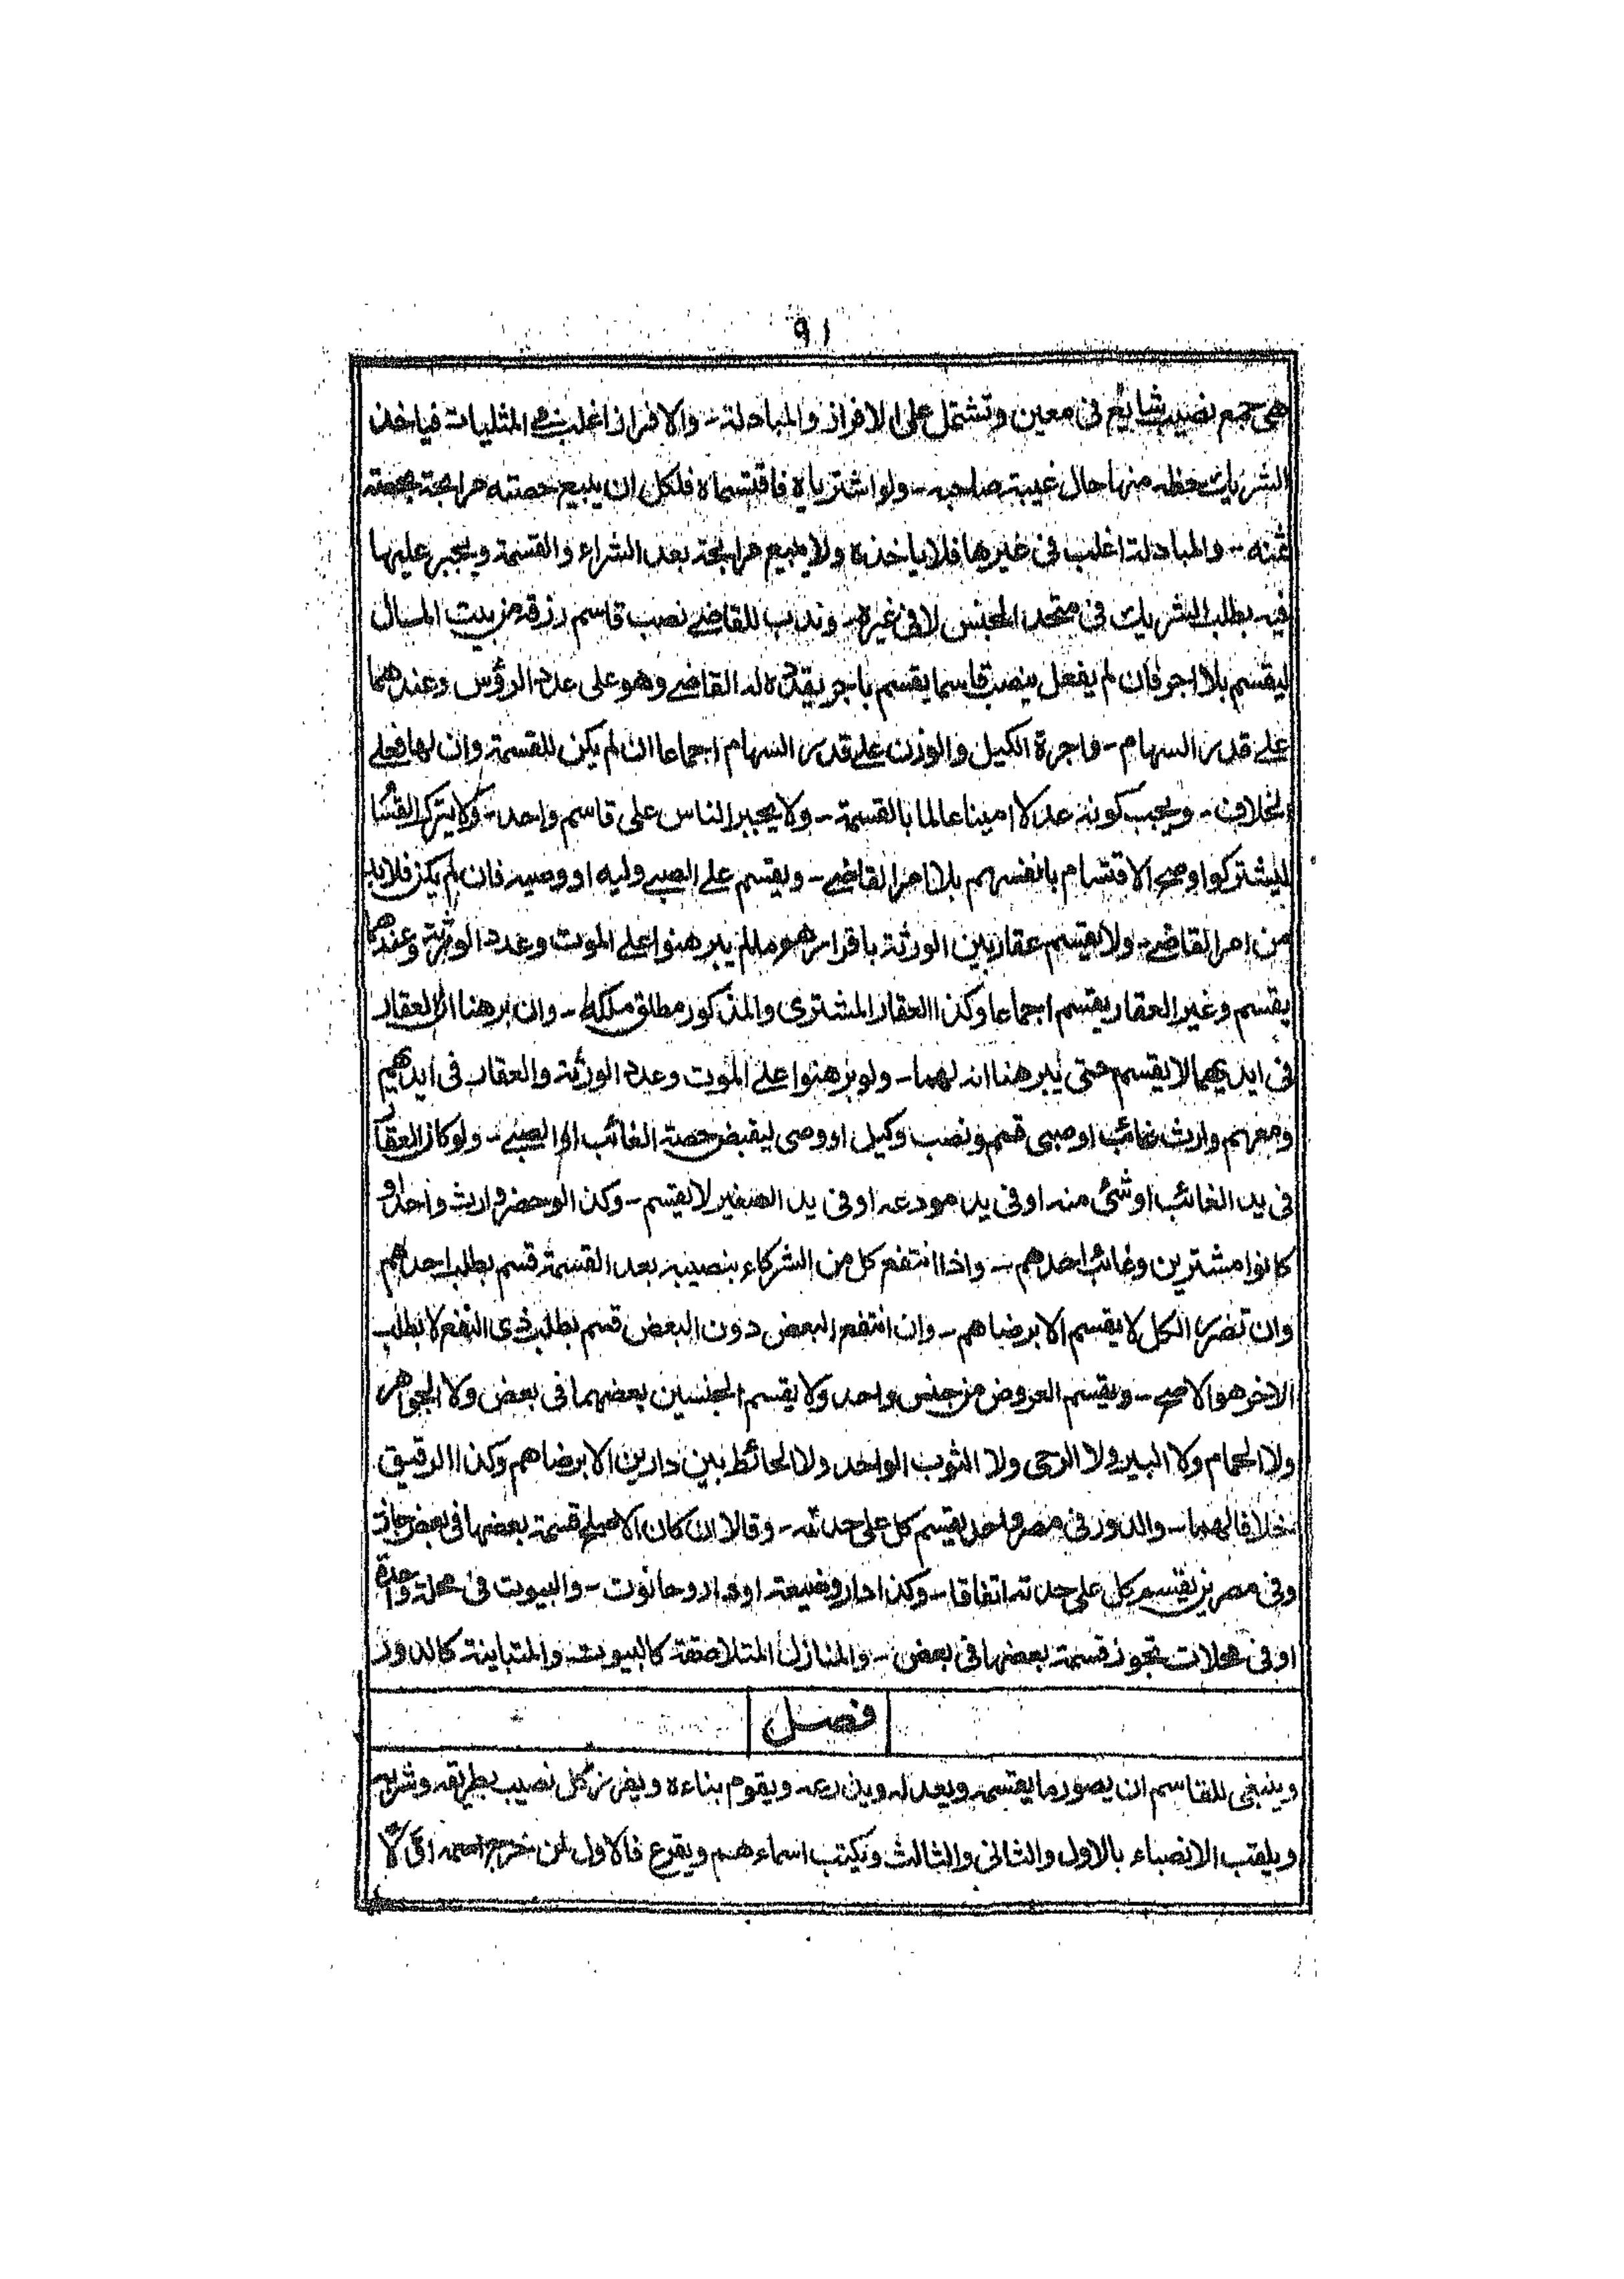 ٩١
هى جمع نصيب شائع فى معين وتشتمل على الافراز والمبادلة - والافراز اغلب فى المثليات فياخذ
الشريك حظه منها حال غيبة صاحبه - ولو اشترياه فاقتسماه فلكل ان يبيع حصته مرابحة بحصة
ثمنه - والمبادلة اغلب فى غيرها فلا ياخذه ولا يبيع مرابحة بعد الشراء والقسمة ويجبر عليها
فيه بطلب الشريك فى متحد الجنس لا فى غيره - وندب للقاضى نصب قاسم رزقه من بيت المال
ليقسم بلا اجر فان لم يفعل ينصب قاسما يقسم باجر يقدره له القاضى وهو على عدد الرؤس وعندهما
على قدر السهام - واجرة الكيل والوزن على قدر السهام اجماعا ان لم يكن للقسمة وان لها فعلى
الخلاف - ويجب كونه عدلا امينا عالما بالقسمة - ولا يجبر الناس على قاسم واحد - ولا يترك القسا
ليشتركوا وصح الاقتسام بانفسهم بلا امر القاضى - ويقسم على الصبى وليه او وصيه فان لم يكن فلابد
من امر القاضى - ولا يقسم عقار بين الورثة باقرارهم مالم يبرهنوا على الموت وعدد الورثة وعندهما
يقسم وغير العقار يقسم اجماعا وكذا العقار المشترى والمذكور مطلق ملكه - وان برهنا ان العقار
فى ايديهما لا يقسم حتى يبرهنا انه لهما - ولو برهنوا على الموت وعدد الورثة والعقار فى ايديهم
ومعهم وارث غائب او صبى قسم ونصب وكيل او وصى ليقبض حصة الغائب او الصبى - ولو كان العقار
فى يد الغائب او شئ منه او فى يد مودعه او فى يد الصغير لا يقسم - وكذا لو حضر وارث واحد او
كانوا مشترين وغائب احدهم - واذا انتفع كل من الشركاء بنصيبه بعد القسمة قسم بطلب احدهم
وان تضرر الكل لا يقسم الا برضاهم - وان انتفع البعض دون البعض قسم بطلب ذى النفع لا بطلب
الاخر هو الاصح - ويقسم العروض من جنس واحد ولا يقسم الجنسين بعضهما فى بعض ولا الجواهر
ولا الحمام ولا البير ولا الرحى ولا الثوب الواحد ولا الحائط بين دارين الا برضاهم وكذا الرقيق
خلافا لهما - والدور فى مصر واحد يقسم كل على حدته - وقالا ان كان الاصلح قسمة بعضها فى بعض جاز
وفى مصرين يقسم كل على حدته اتفاقا - وكذا دار وضيعة او دار وحانوت - والبيوت فى محلة واحدة
او فى محلات تجوز قسمة بعضها فى بعض - والمنازل المتلاصقة كالبيوت والمتباينة كالدور
فصل
وينبغى للقاسم ان يصور ما يقسمه ويعدله ويذرعه ويقوم بناءه ويفرز كل نصيب بطريقه وشربه
ويلقب الانصباء بالاول والثانى والثالث ويكتب اسماءهم ويقرع فالاول لمن خرج اسمه اولا